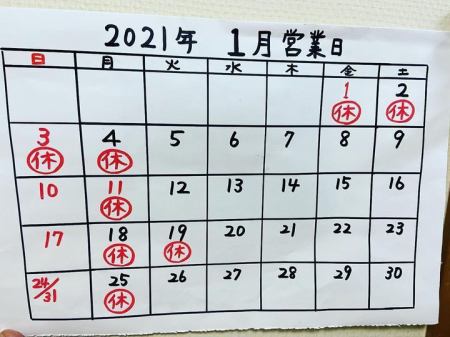 2021年 1月営業日
日 月 火 水 木 金 土
1 2
休 休
3 4 5 6 7 8 9
休 休
10 11 12 13 14 15 16
休
17 18 19 20 21 22 23
休 休
24/31 25 26 27 28 29 30
休